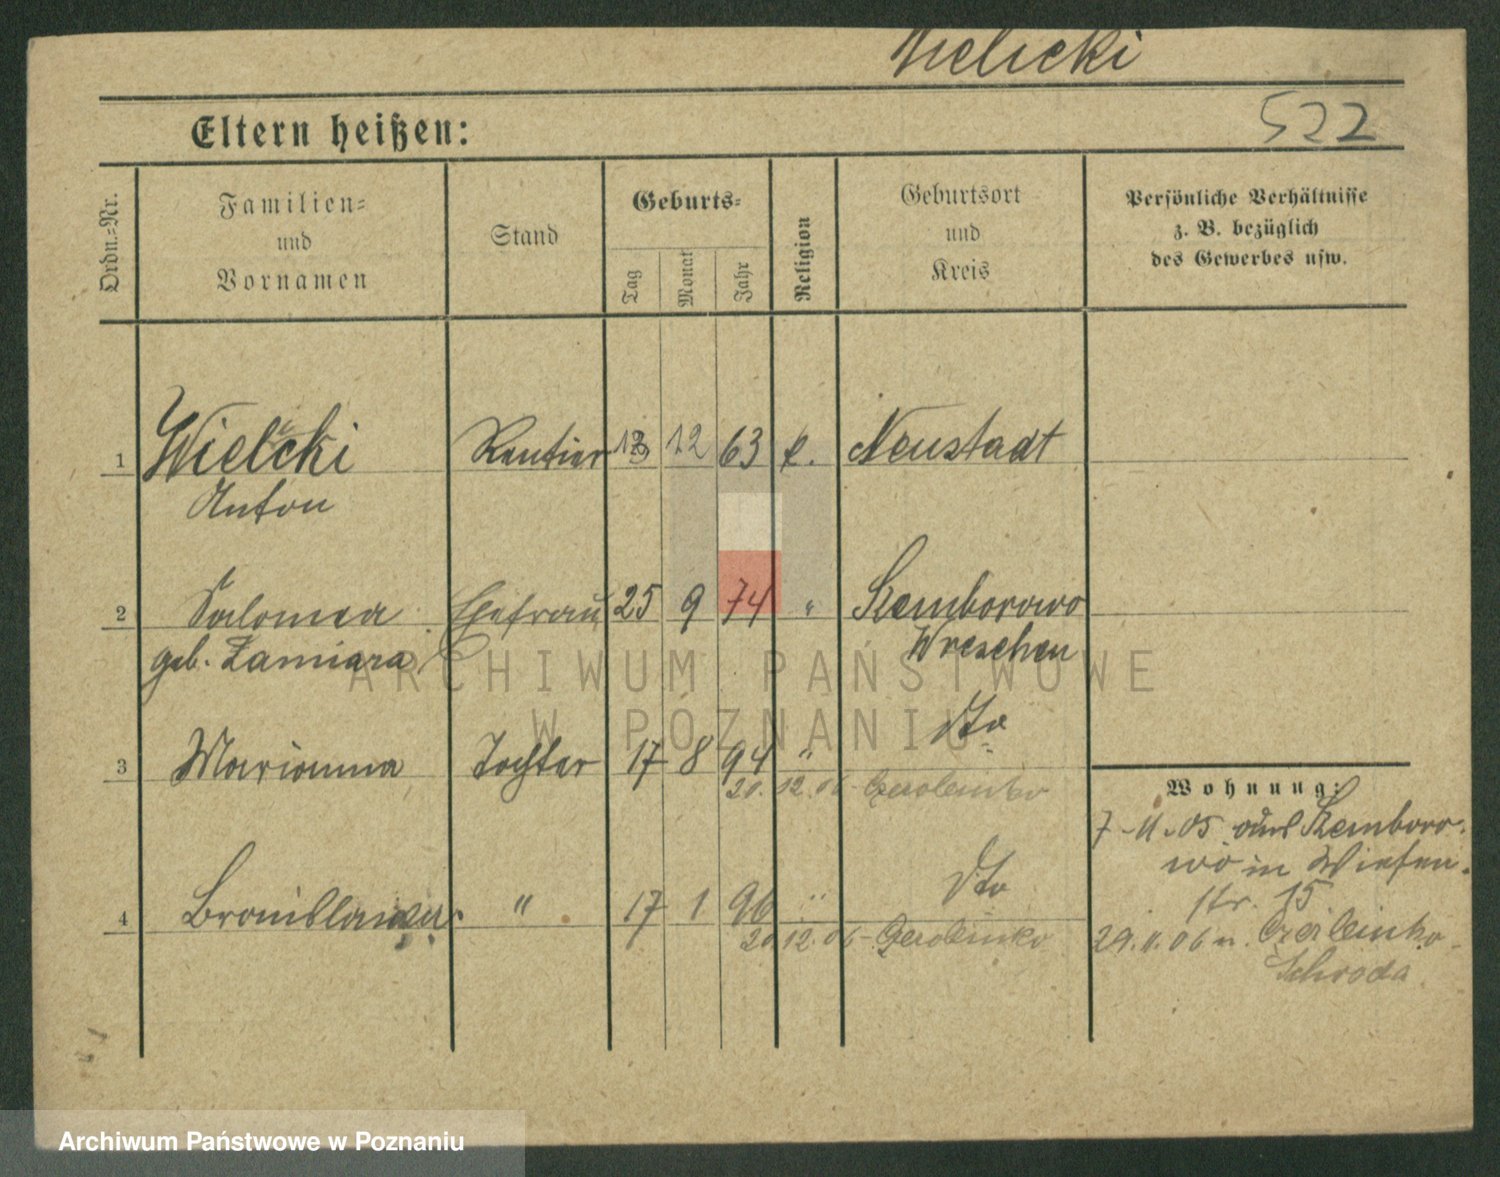 Wielicki
522
Eltern heißen:
Ordn.-Nr.
Familien-
und
Vornamen
Stand
Geburts-
Tag
Monat
Jahr
Religion
Geburtsort
und
Kreis
Persönliche Verhältnisse
z. B. bezüglich
des Gewerbes usw.
1 Wielicki Rentier 12 63 k. Neustadt
Anton
2 Salomea Ehefrau 25 9 74 " Kemborowo
geb. Zamiara Wreschen
3 Marianna Tochter 17 8 94 " dto
20. 12. 06
4 Bronislawa " 17 1 96 " dto
20 12. 06
Wohnung:
7-11-05 aus Kemboro-
wo in Wiesen-
str. 15
29.11.06 n.
Schroda
ARCHIWUM PAŃSTWOWE
W POZNANIU
Archiwum Państwowe w Poznaniu